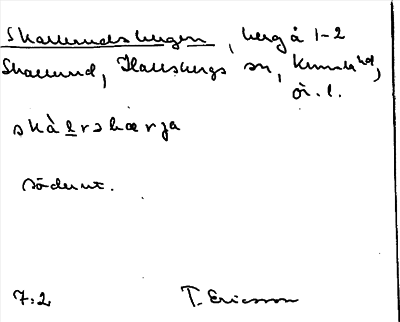 Skallerudsbergen, berg å 1-2
Skallerud, Hallsbergs sn, Kumla hd,
ör. l.
skàlrsbærja
söderut.
7:2 T. Ericsson